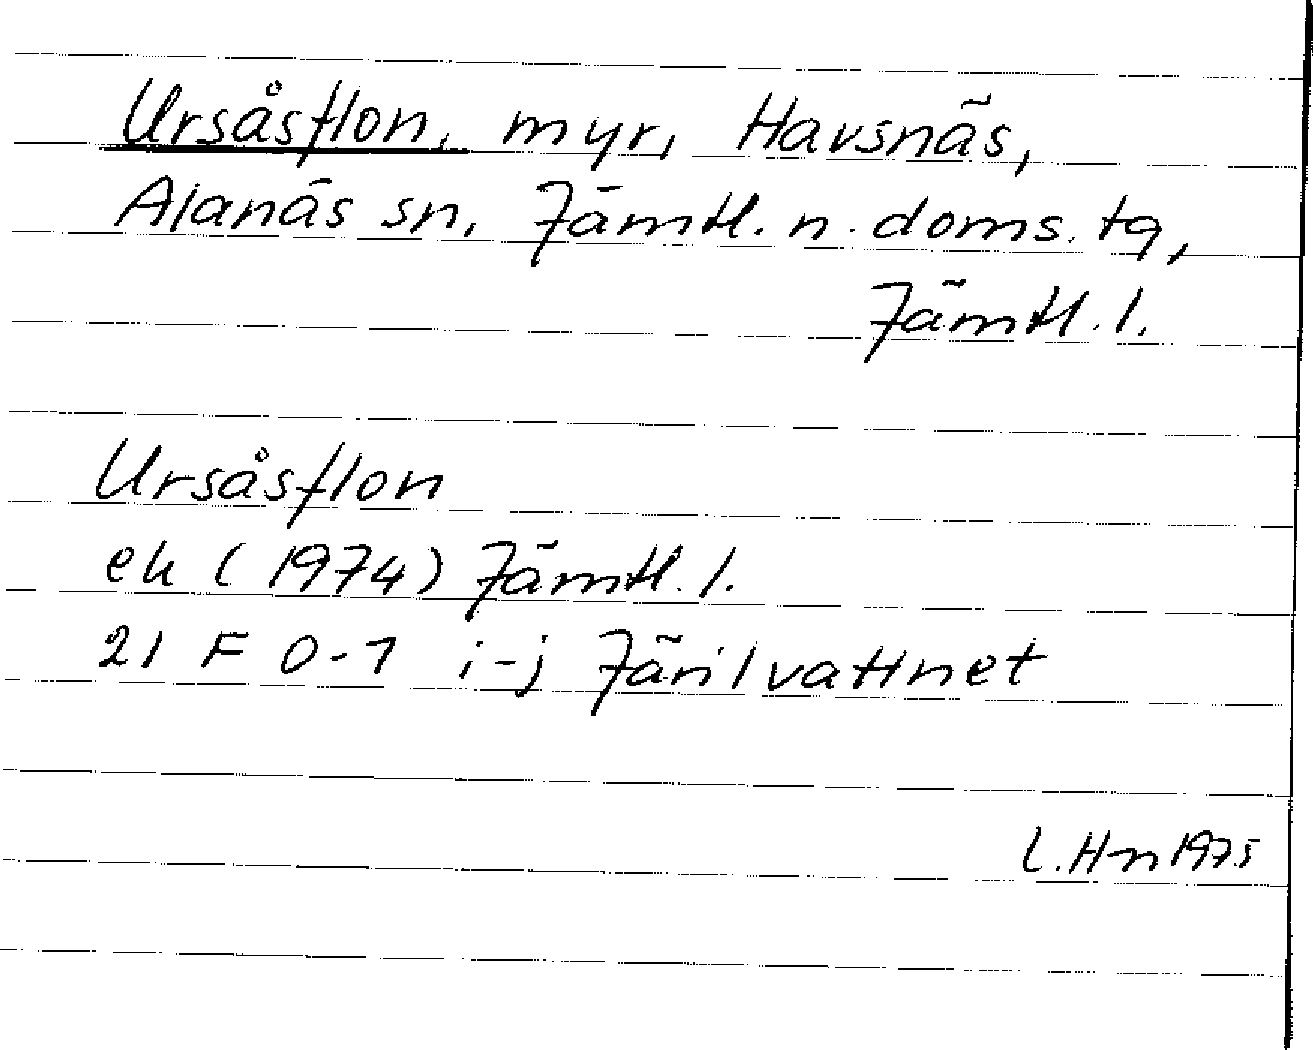 Ursåsflon, myr, Havsnäs,
Alanäs sn, Jämtl. n. doms. tg,
Jämtl. l.
Ursåsflon
ek (1974) Jämtl. l.
21 F 0-1 i-j Järilvattnet
L. Hn 1975